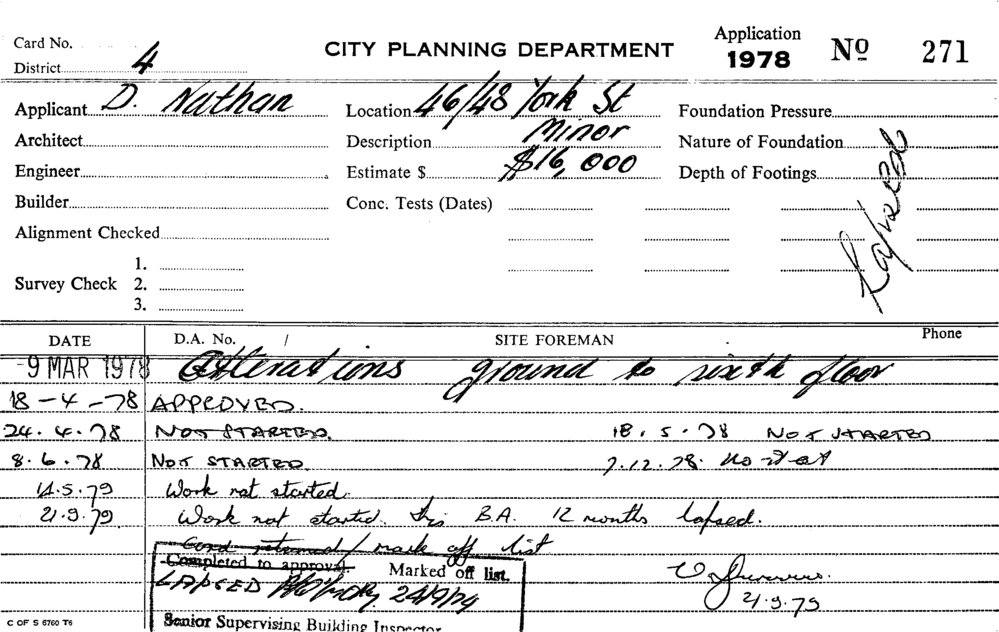 Card No.
District 4
CITY PLANNING DEPARTMENT
Application
1978 No 271
Applicant D. Nathan
Location 46/48 York St
Foundation Pressure
Architect
Description Minor
Nature of Foundation
Engineer
Estimate $ $16,000
Depth of Footings
Lapsed
Builder
Conc. Tests (Dates)
Alignment Checked
Survey Check 1.
2.
3.
DATE D.A. No. / SITE FOREMAN Phone
-9 MAR 1978 Alterations ground to sixth floor
18-4-78 APPROVED.
24.4.78 NOT STARTED. 18.5.78 NOT STARTED
8.6.78 NOT STARTED 7.12.78. No start
14.5.79 Work not started.
21.9.79 Work not started. This B.A. 12 months lapsed.
Card returned / mark off list
Completed to approval. Marked off list.
LAPSED 24/9/79
21.9.79
Senior Supervising Building Inspector
C OF S 6760 T6